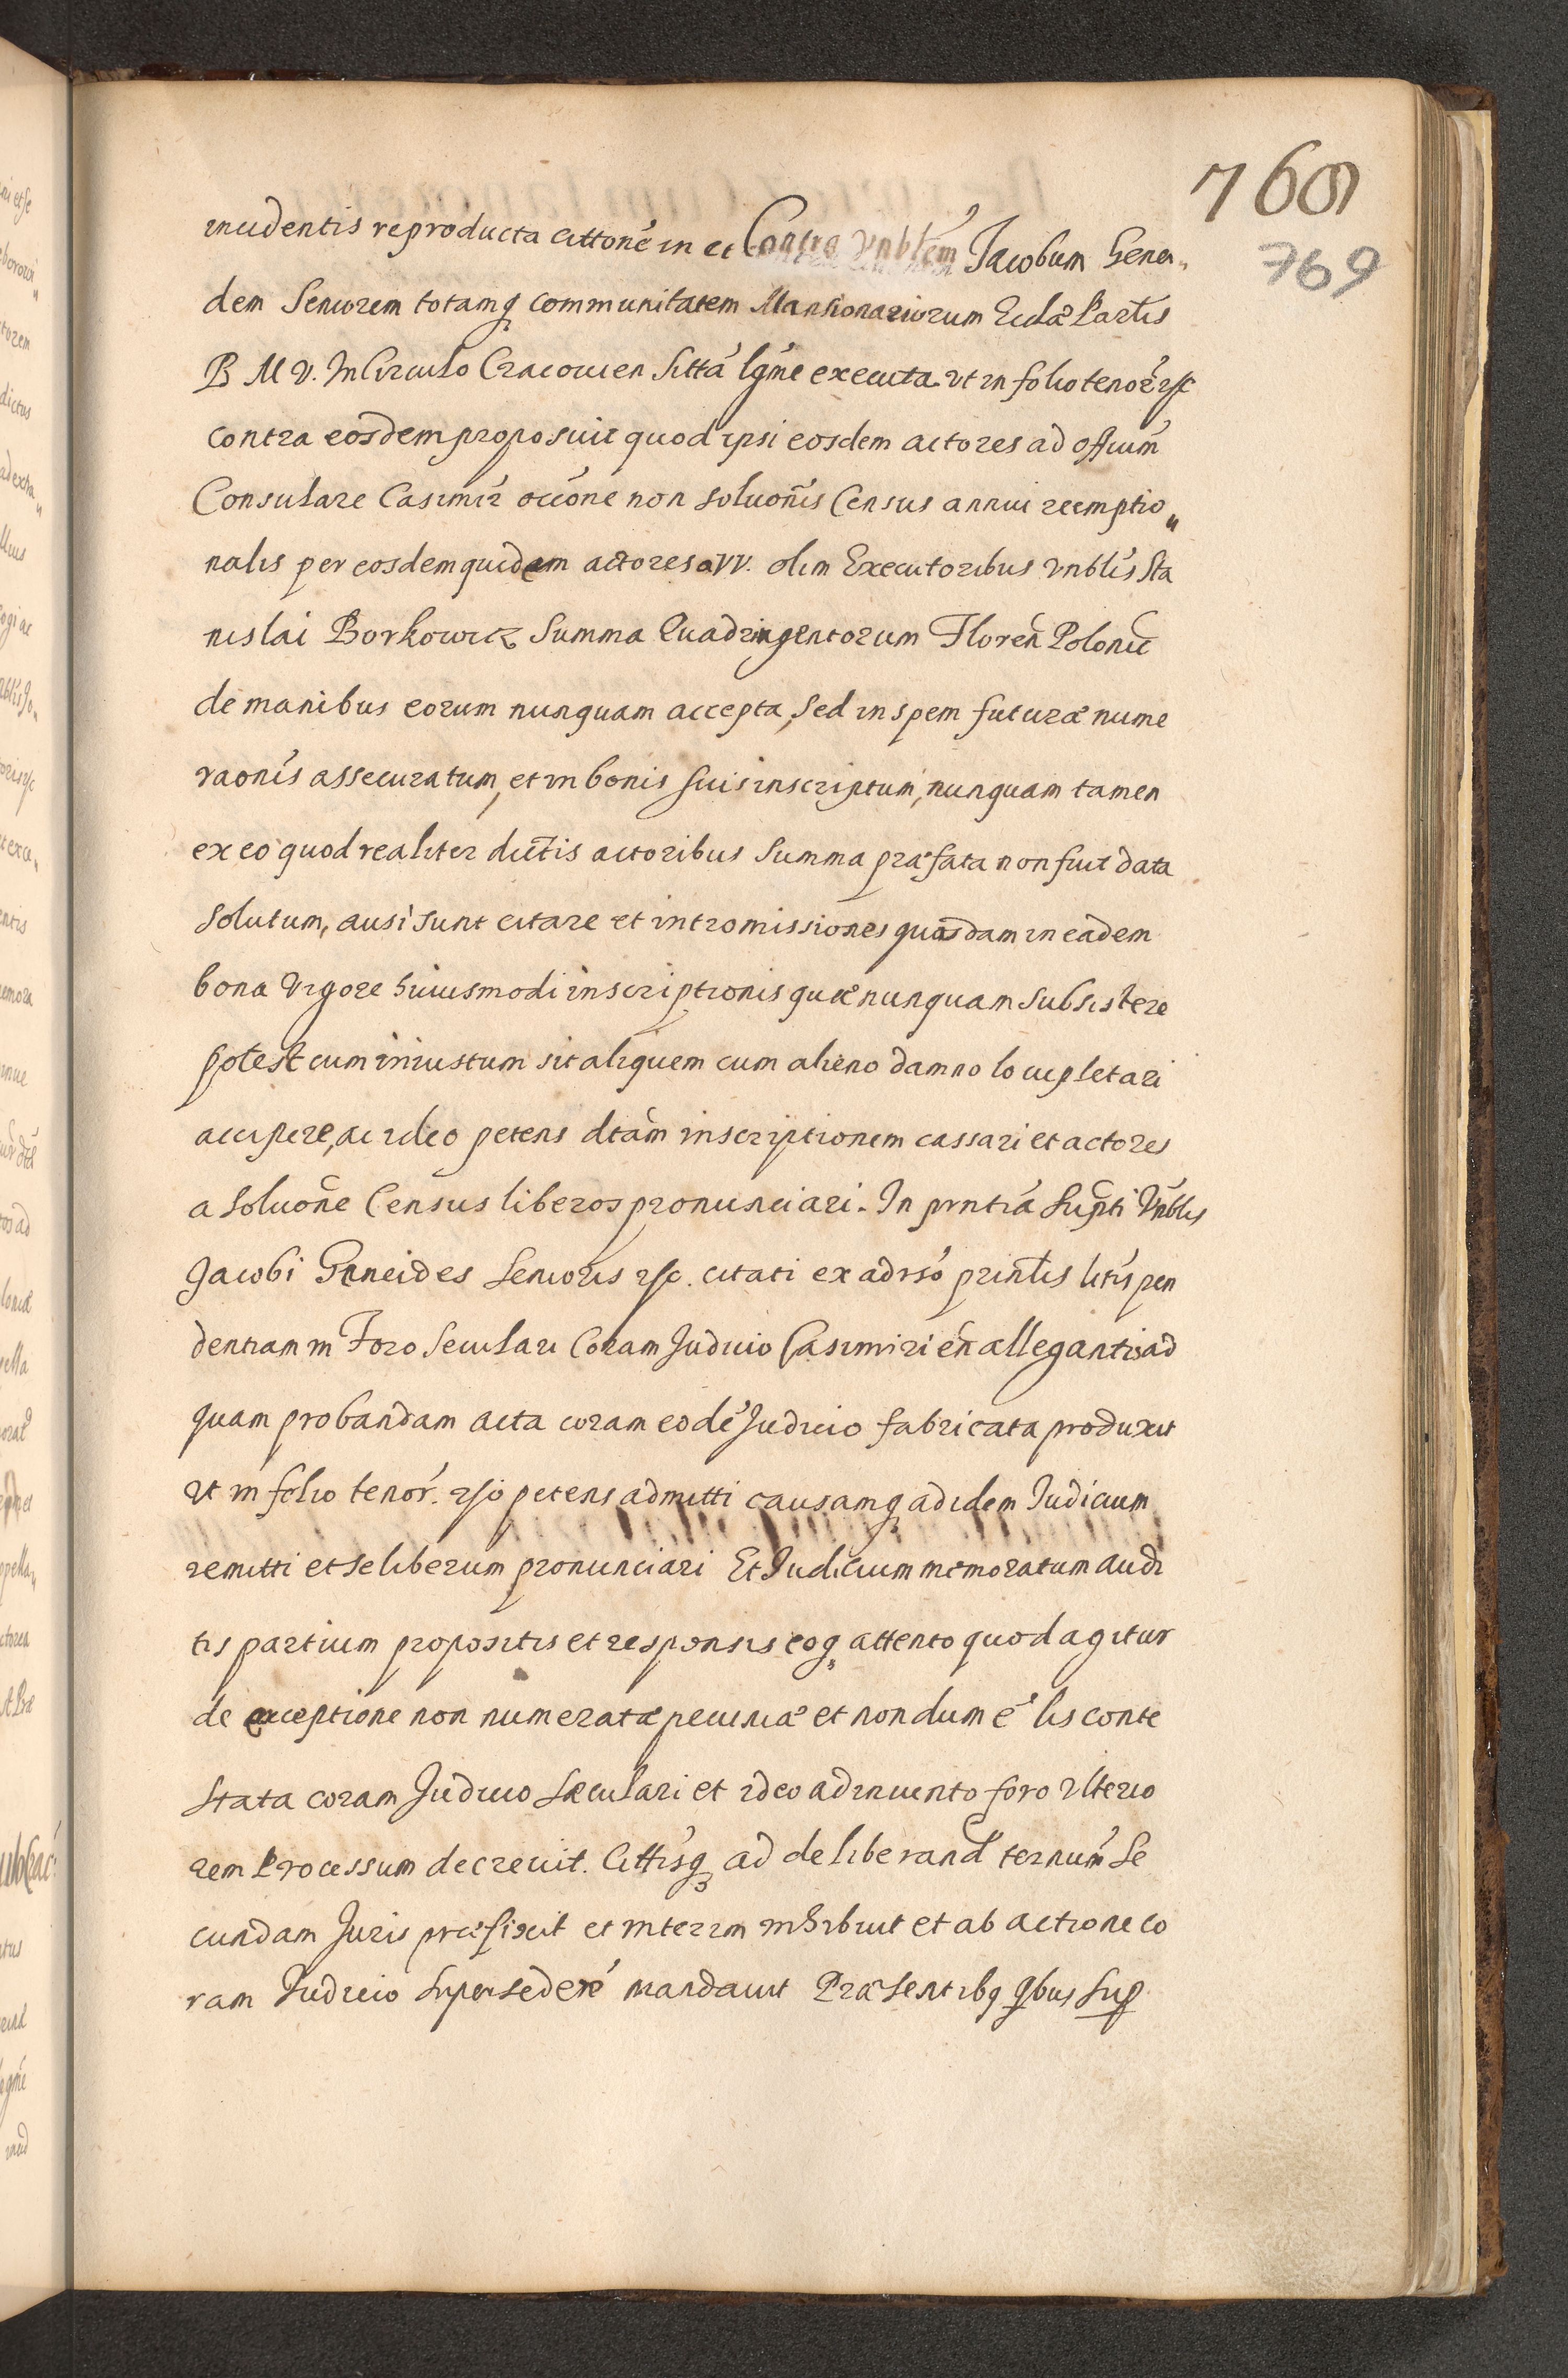 769
769
incidentis reproducta cittone in et Contra vnblem Jacobum Gena„
dem Seniorem totamq communitatem Mansionariorum Eccläe Partis
B M V. In Circulo Cracouien sitta lgme executa. vt in folio tenore rsc
contra eosdem proposuit quod ipsi eosdem actores ad officium
Consulare Casimir occone non soluonis Census annui reemptio„
nalis per eosdem quidem actores a VV. olim Executoribus vnblis Sta
nislai Borkowicz Summa Quadringentorum Floren Polonic
de manibus eorum nunquam accepta, sed in spem futuræ nume
raonis assecuratum, et in bonis suis inscriptum, nunquam tamen
ex eo quod realiter dictis actoribus Summa præfata non fuit data
solutum, ausi sunt citare et intromissiones quasdam in eadem
bona Vigore huiusmodi inscriptionis quæ nunquam subsistere
potest cum iniustum sit aliquem cum alieno damno locupletari
accipere, ac ideo petens dtam inscriptionem cassari et actores
a soluone Census liberos pronunciari. In pntia supti Vnblis
Jacobi Geneides Senioris rsc. citati ex adrso printis litis pen
dentiam in Foro Seculari Coram Judicio Casimirien allegantis ad
quam probandam acta coram eode Judicio fabricata produxit
vt in folio tenor. rso petens admitti causamq ad idem Iudicium
remitti et se liberum pronunciari Et Iudicium memoratum audi
tis partium propositis et responsis eoq attento quod agitur
de exceptione non numeratæ pecuniæ et nondum e lis conte
stata coram Judicio Sæculari et ideo ad inuento foro vlterio
rem Processum decreuit. Cittisq ad deliberand ternum Se
cundam Juris præfixit et interim inhibuit et ab actione co
ram Iudicio supersedere mandauit Præsentibq qbus sup